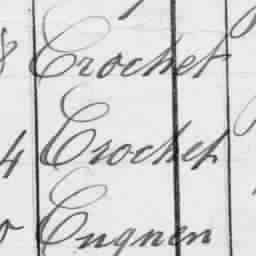 Crochet
4 Crochet
Cugnen